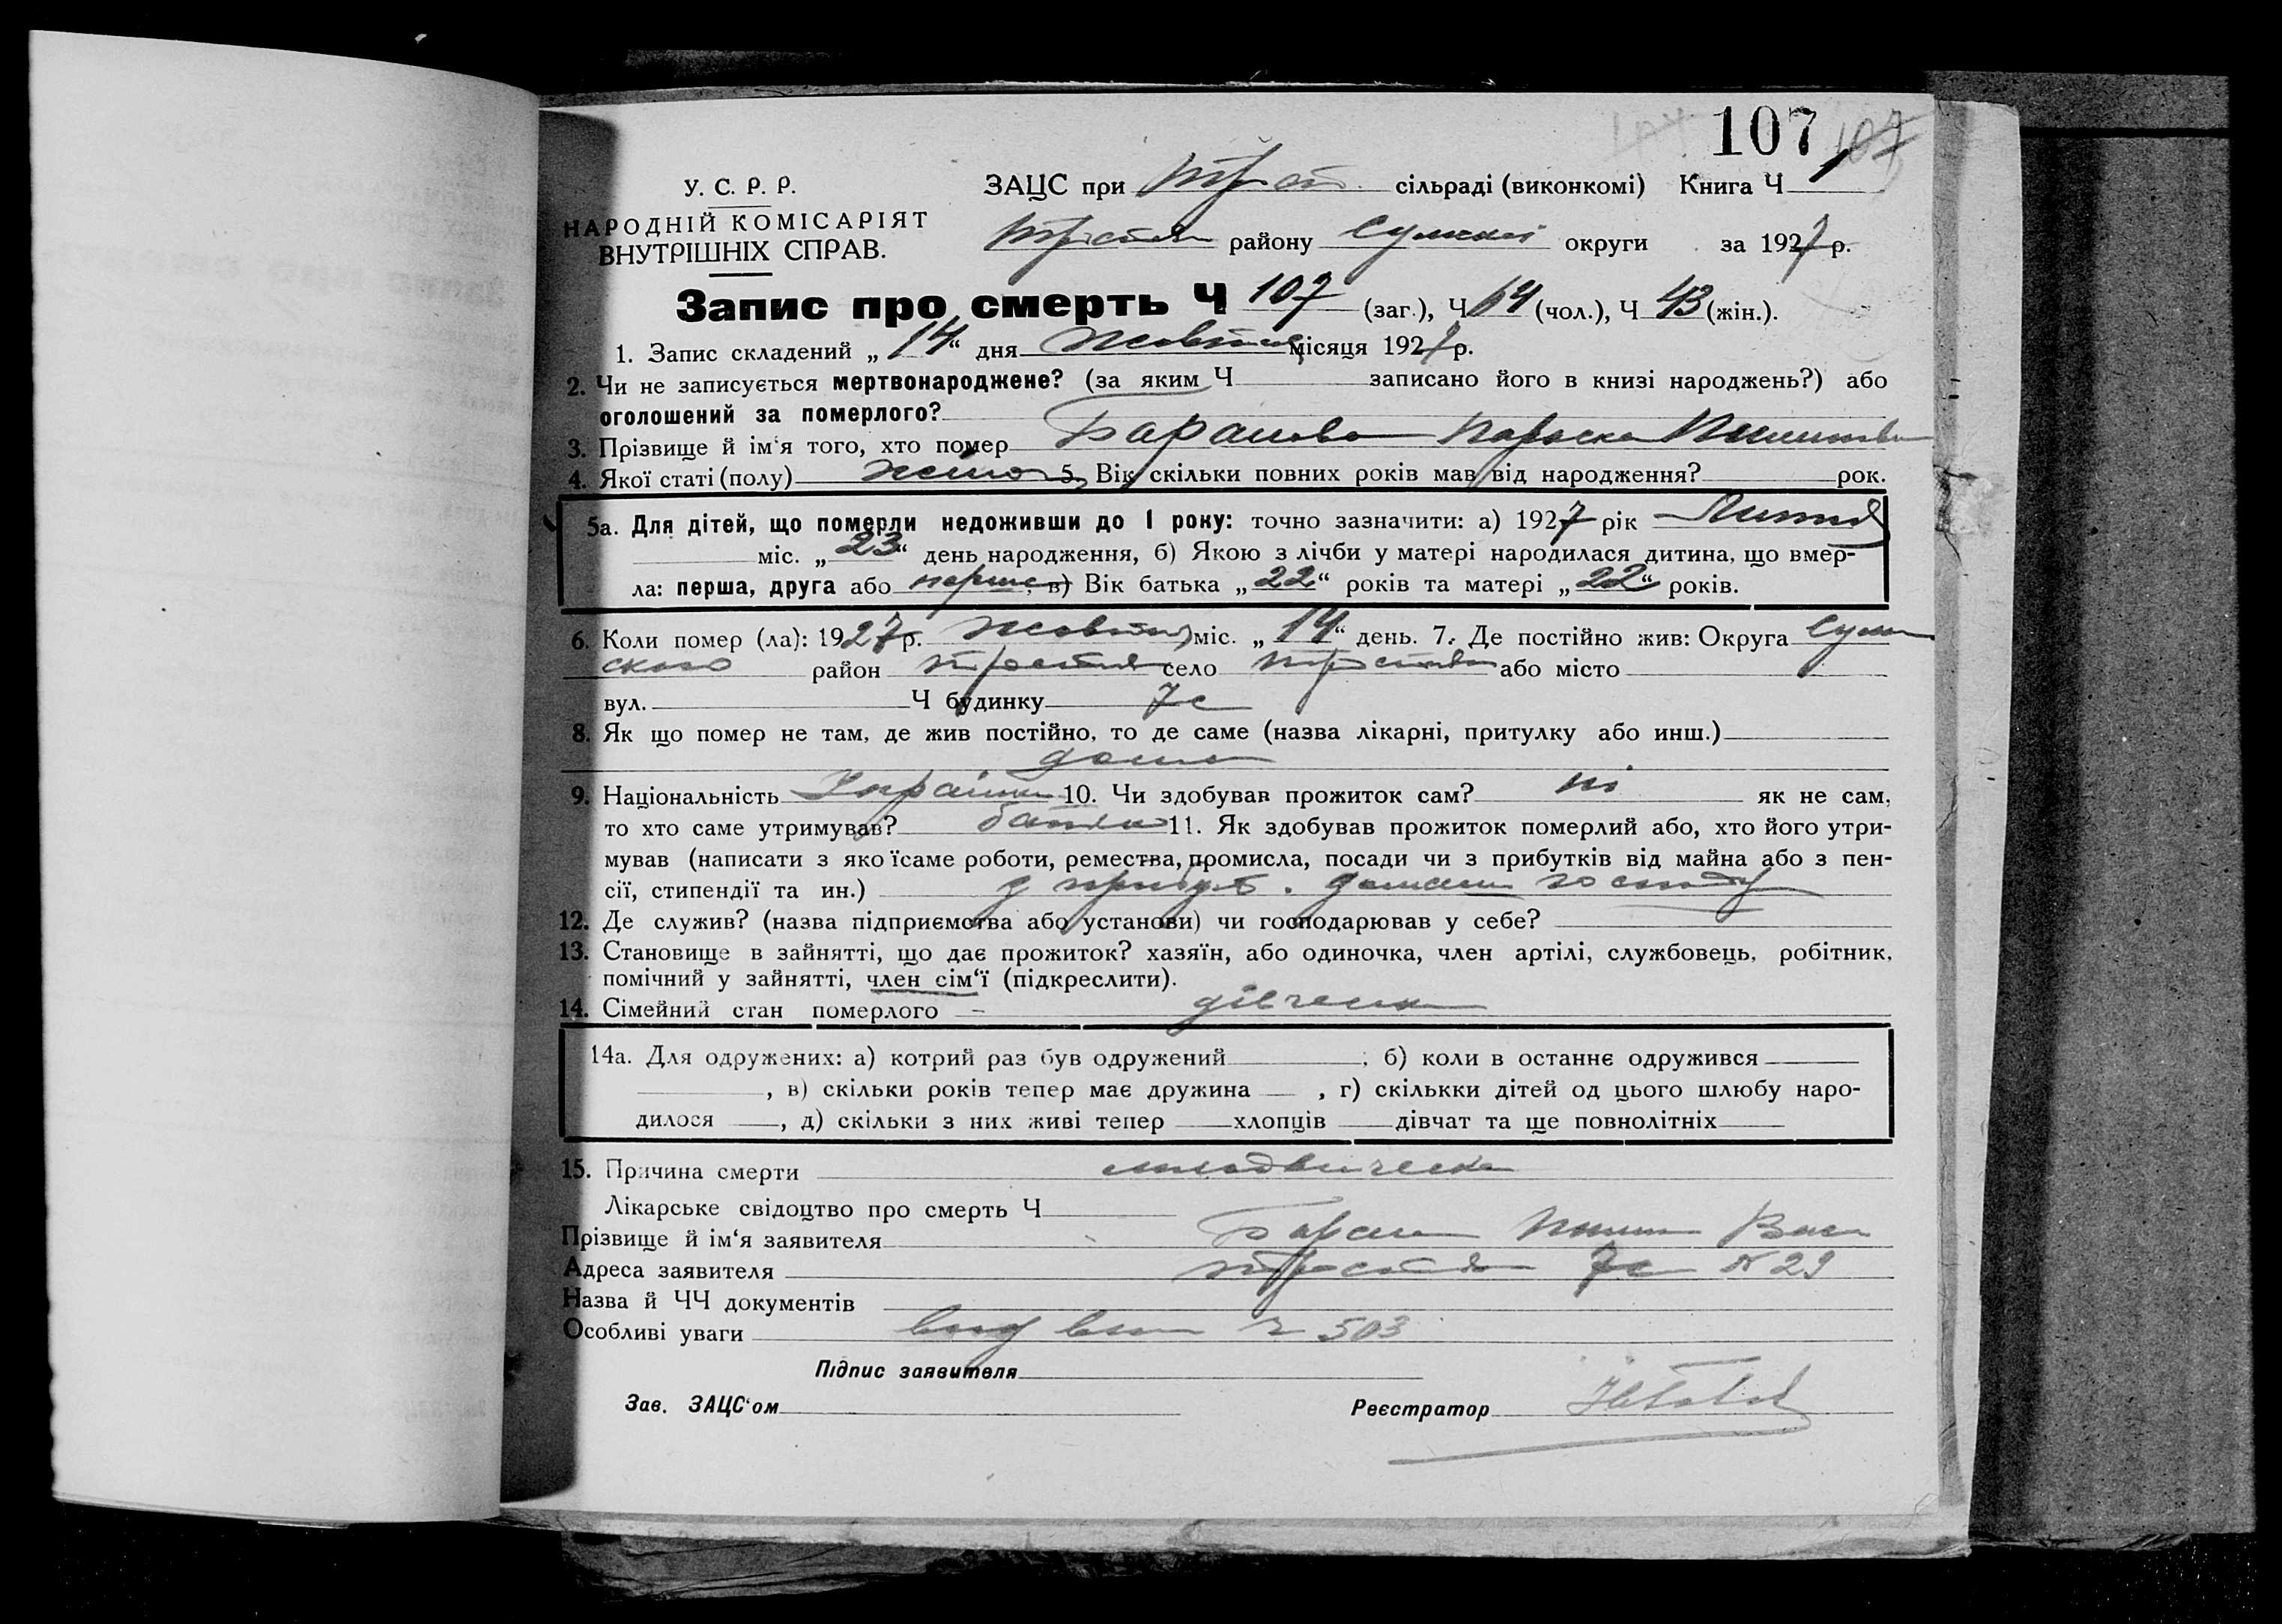 107 107
У. С. Р. Р.
НАРОДНІЙ КОМІСАРІЯТ
ВНУТРІШНІХ СПРАВ.
ЗАЦС при Трост. сільраді (виконкомі) Книга Ч 1
Тростян району Сумської округи за 1927 р.
Запис про смерть Ч 107 (заг.), Ч 64 (чол.), Ч 43 (жін.).
1. Запис складений „ 14 “ дня Жовтня місяця 1927 р.
2. Чи не записується мертвонароджене? (за яким Ч записано його в книзі народжень?) або
оголошений за померлого?
3. Прізвище й ім‘я того, хто помер Баранова Параска
4. Якої статі (полу) жіно 5. Вік скільки повних років мав від народження? рок.
5а. Для дітей, що померли недоживши до 1 року: точно зазначити: а) 1927 рік Липня
міс. „ 23 “ день народження, б) Якою з лічби у матері народилася дитина, що вмер-
ла: перша, друга або перша, в) Вік батька „ 22 “ років та матері „ 22 “ років.
6. Коли помер (ла): 1927 р. Жовтня міс. „ 14 “ день. 7. Де постійно жив: Округа Сум
ского район Тростян село Тростян або місто
вул. Ч будинку 7с
8. Як що помер не там, де жив постійно, то де саме (назва лікарні, притулку або инш.)
дома
9. Національність Украінка 10. Чи здобував прожиток сам? ні як не сам,
то хто саме утримував? батько 11. Як здобував прожиток померлий або, хто його утри-
мував (написати з яко їсаме роботи, ремества, промисла, посади чи з прибутків від майна або з пен-
сії, стипендії та ин.)
12. Де служив? (назва підприємства або установи) чи господарював у себе?
13. Становище в зайнятті, що дає прожиток? хазяїн, або одиночка, член артілі, службовець, робітник,
помічний у зайнятті, член сім‘ї (підкреслити).
14. Сімейний стан померлого –
14а. Для одружених: а) котрий раз був одружений ; б) коли в останнє одружився
, в) скільки років тепер має дружина , г) скількки дітей од цього шлюбу наро-
дилося , д) скільки з них живі тепер хлопців дівчат та ще повнолітніх
15. Причина смерти
Лікарське свідоцтво про смерть Ч
Прізвище й ім‘я заявителя Баран
Адреса заявителя Тростян 7с № 29
Назва й ЧЧ документів
Особливі уваги ч 503
Підпис заявителя
Зав. ЗАЦС‘ом Реєстратор